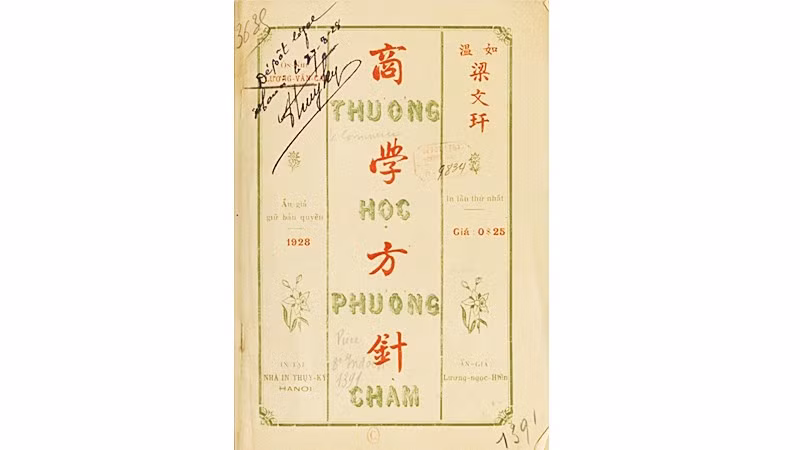 3635
Dépôt légal
Hanoi le 27-3-28
LƯƠNG-VĂN-CAN
Ấn giả
giữ bản quyền
1928
IN TẠI
NHÀ IN THỤY-KÝ
HANOI
商
THƯƠNG
學
HỌC
方
PHƯƠNG
針
CHÂM
1391
溫如
梁文玕
9834
In lần thứ nhất
Giá : 0$25
ẤN-GIẢ
Lương-ngọc-Hiền
1391